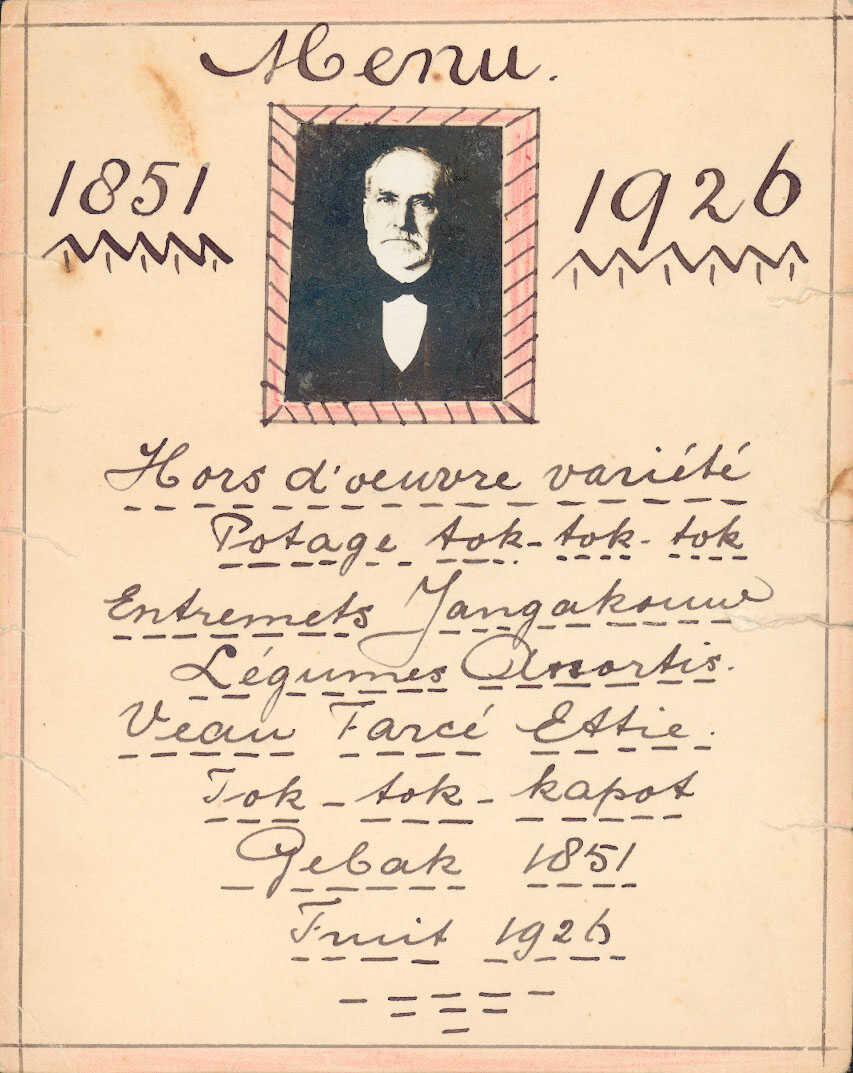 Menu.
1851
1926
Hors d'oeuvre variété
Potage tok-tok-tok
Entremets
Légumes Assortis.
Veau Farcé Ettie.
Tok-tok-kapot
Gebak 1851
Fruit 1926